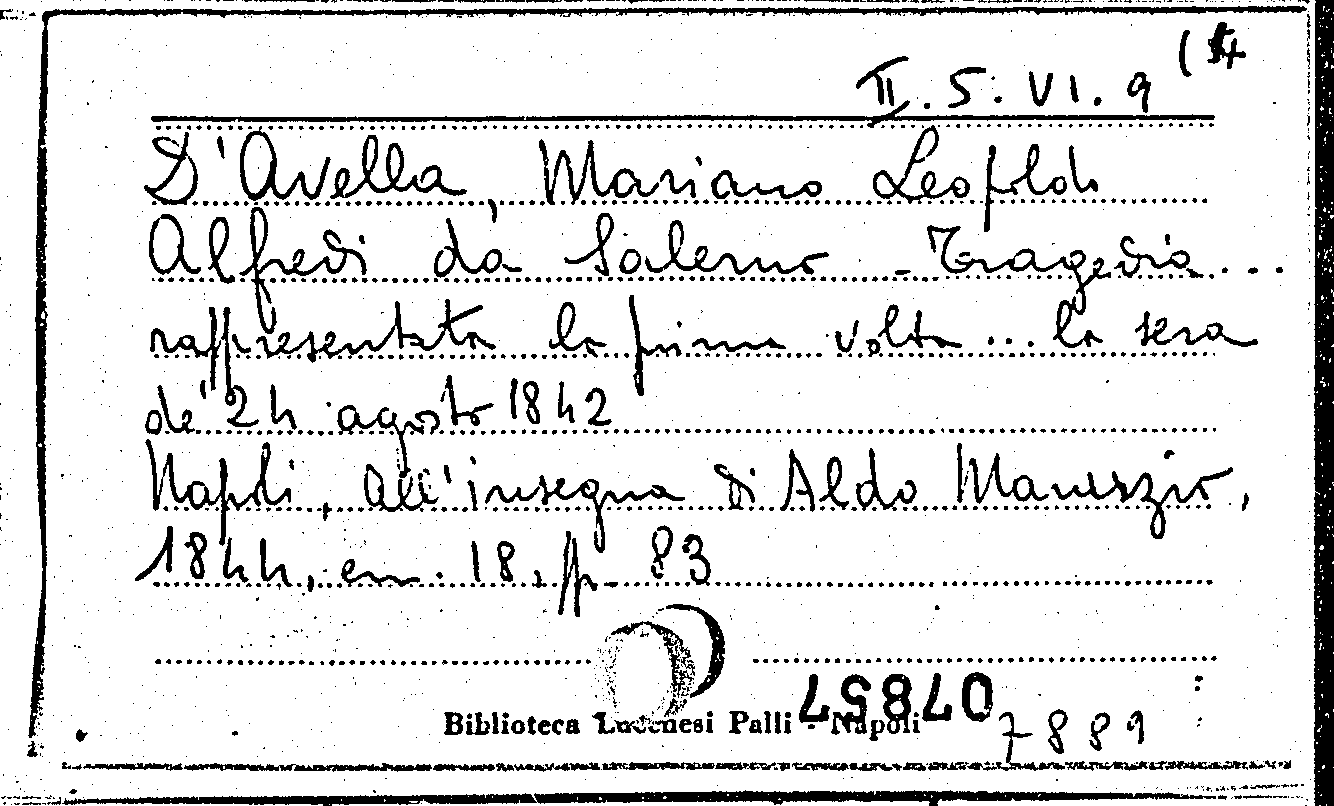 II. 5. VI. 9 (4
D'Avella, Mariano Leopoldo
Alfredi da Salerno - Tragedia ...
rappresentata la prima volta ... la sera
de' 24 agosto 1842
Napoli, all'insegna di Aldo Manuzio,
1844, cm. 18, pp. 83
07857
Biblioteca Lucchesi Palli - Napoli
7889